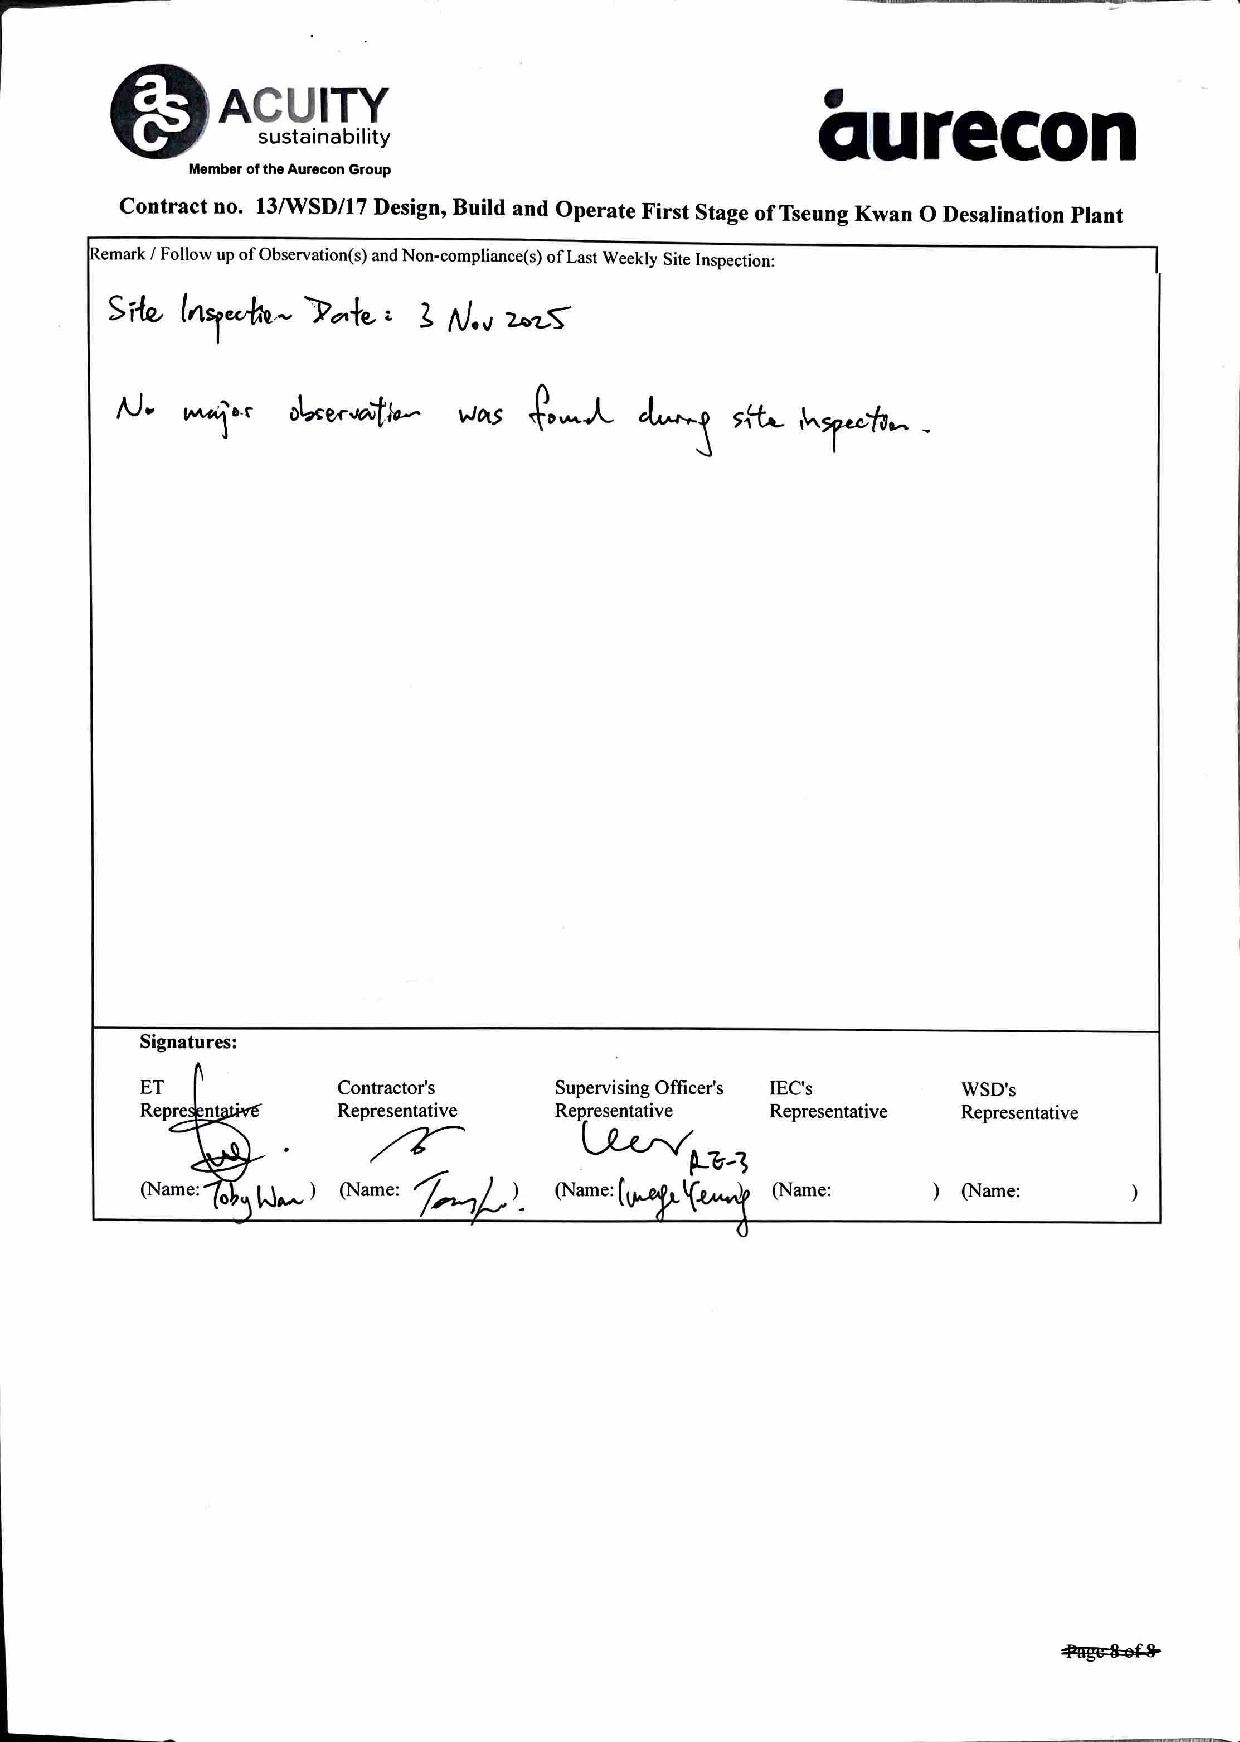 asc ACUITY
sustainability
Member of the Aurecon Group
aurecon
Contract no. 13/WSD/17 Design, Build and Operate First Stage of Tseung Kwan O Desalination Plant
Remark / Follow up of Observation(s) and Non-compliance(s) of Last Weekly Site Inspection:
Site Inspection Date: 3 Nov 2025
No major observation was found during site inspection.
Signatures:
ET Contractor's Supervising Officer's IEC's WSD's
Representative Representative Representative Representative Representative
(Name: Toby Wan) (Name: ) (Name: Yeung (Name: ) (Name: )
Page 8 of 8